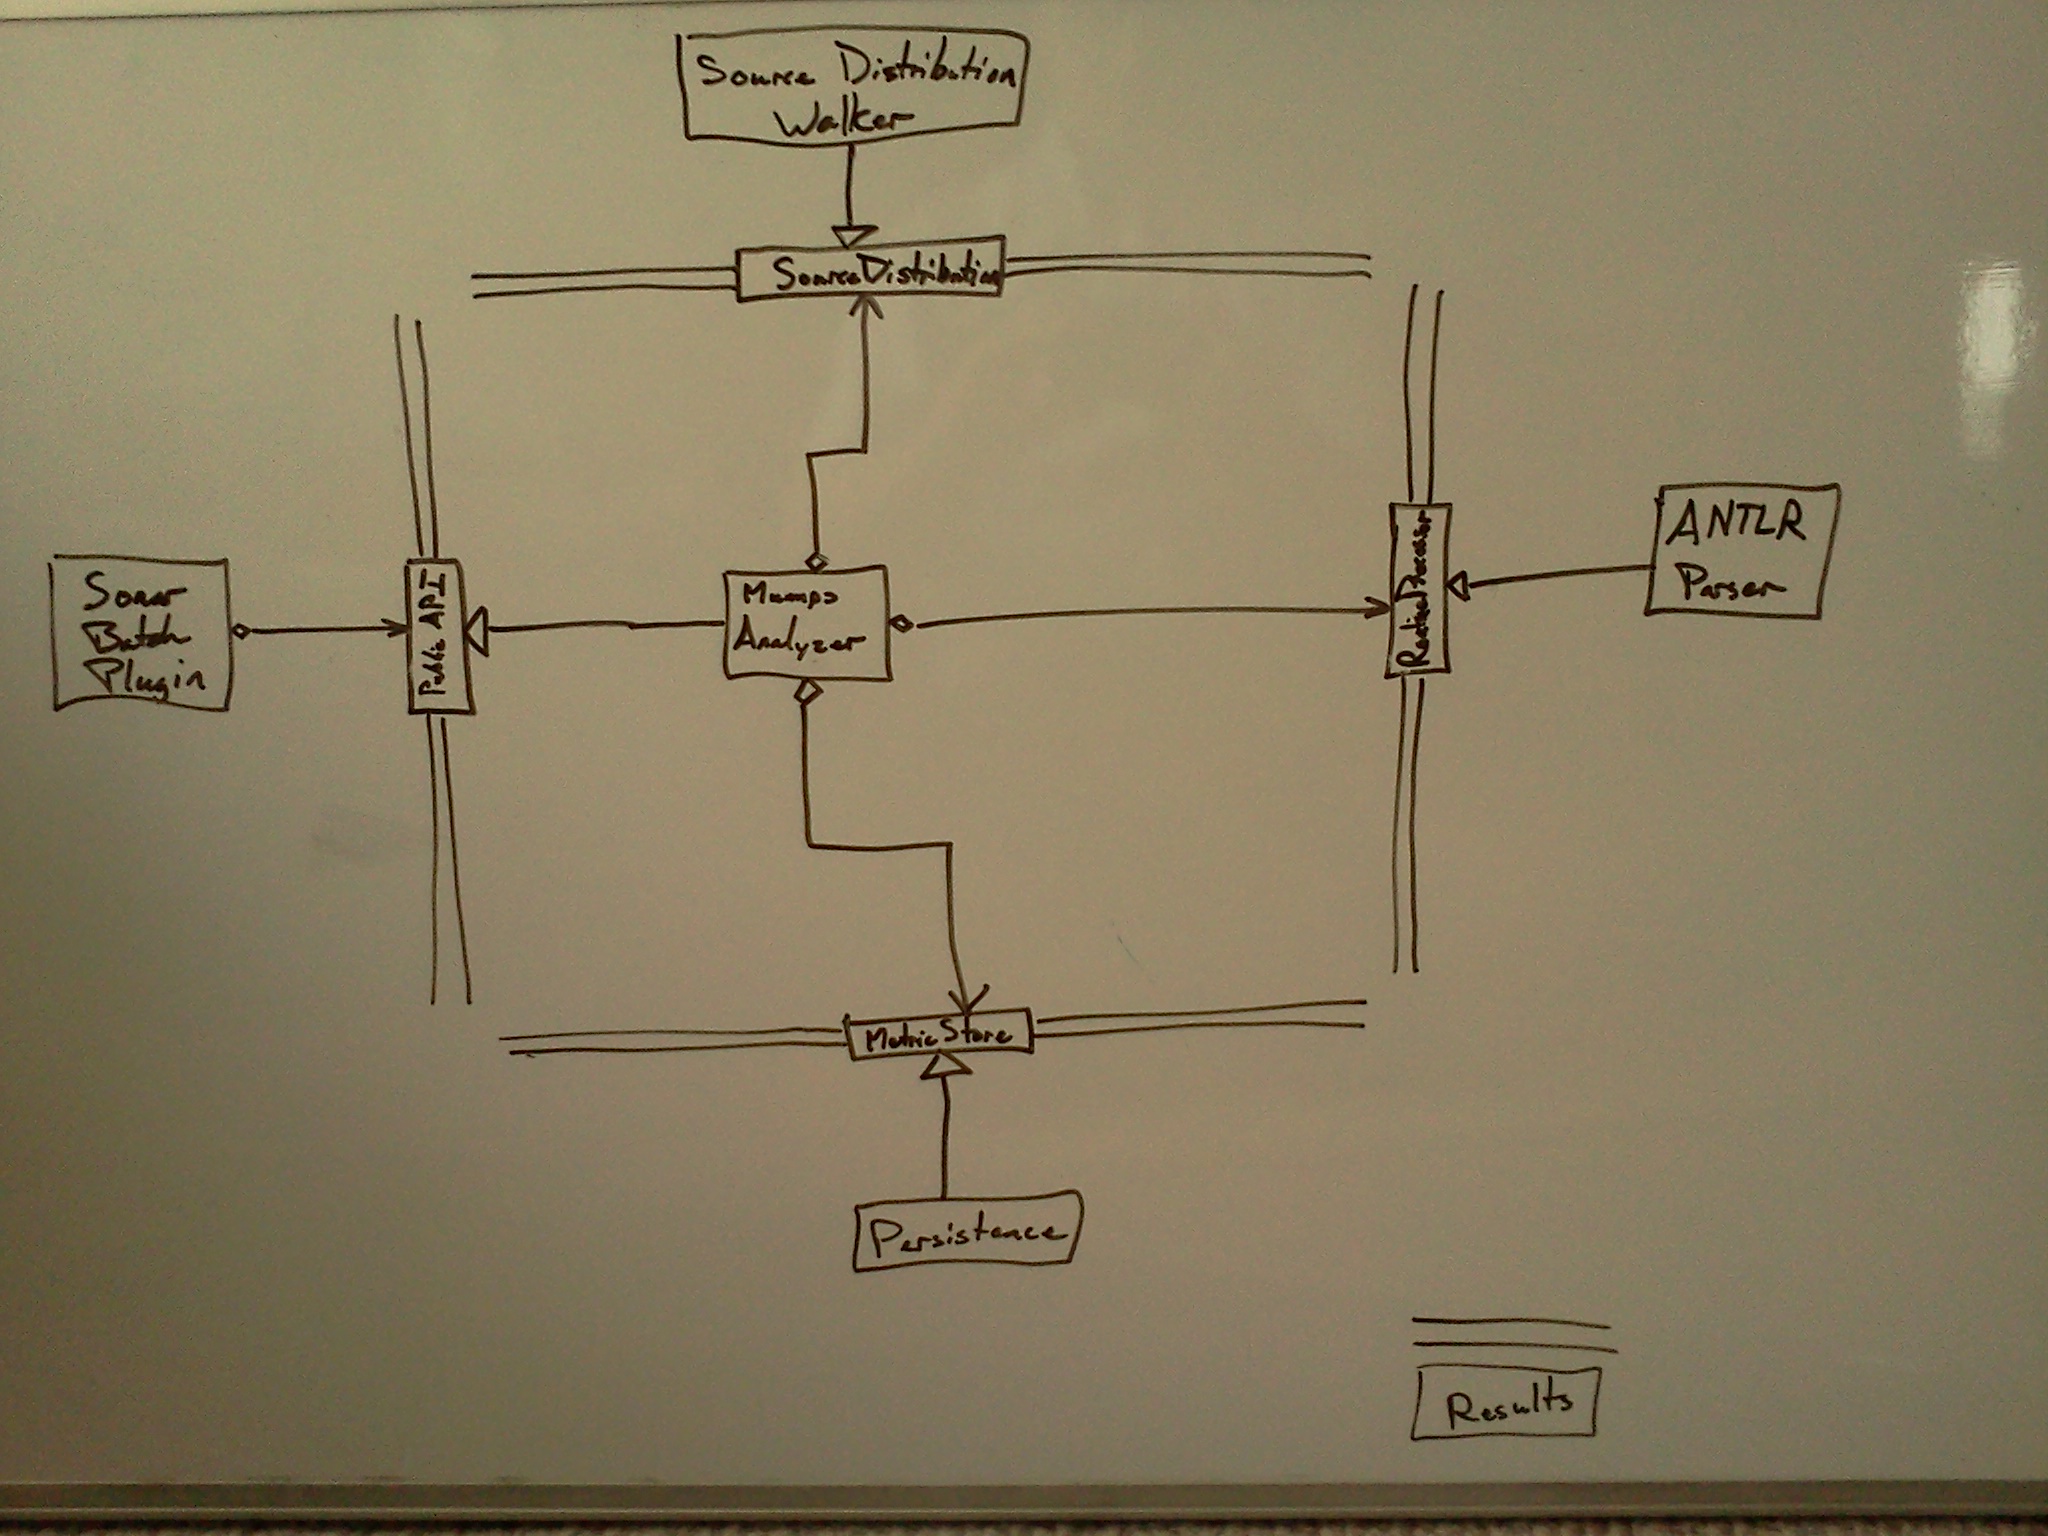 Source Distribution
Walker
SourceDistribution
Sonar
Batch
Plugin
Public API
Mumps
Analyzer
RoutineProcessor
ANTLR
Parser
MetricStore
Persistance
Results